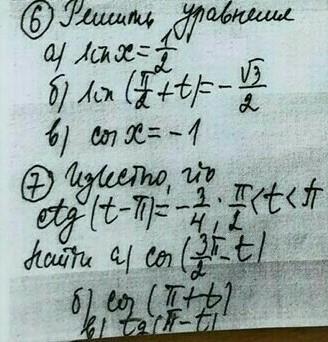 ⑥ Решить уравнения
а) sin x = 1/2
б) sin (π/2 + t) = - √3/2
в) cos x = -1
⑦ Известно, что
ctg (t - π) = - 3/4, π/2 < t < π
Найти а) cos (3/2 π - t)
б) cos (π + t)
в) tg (π - t)